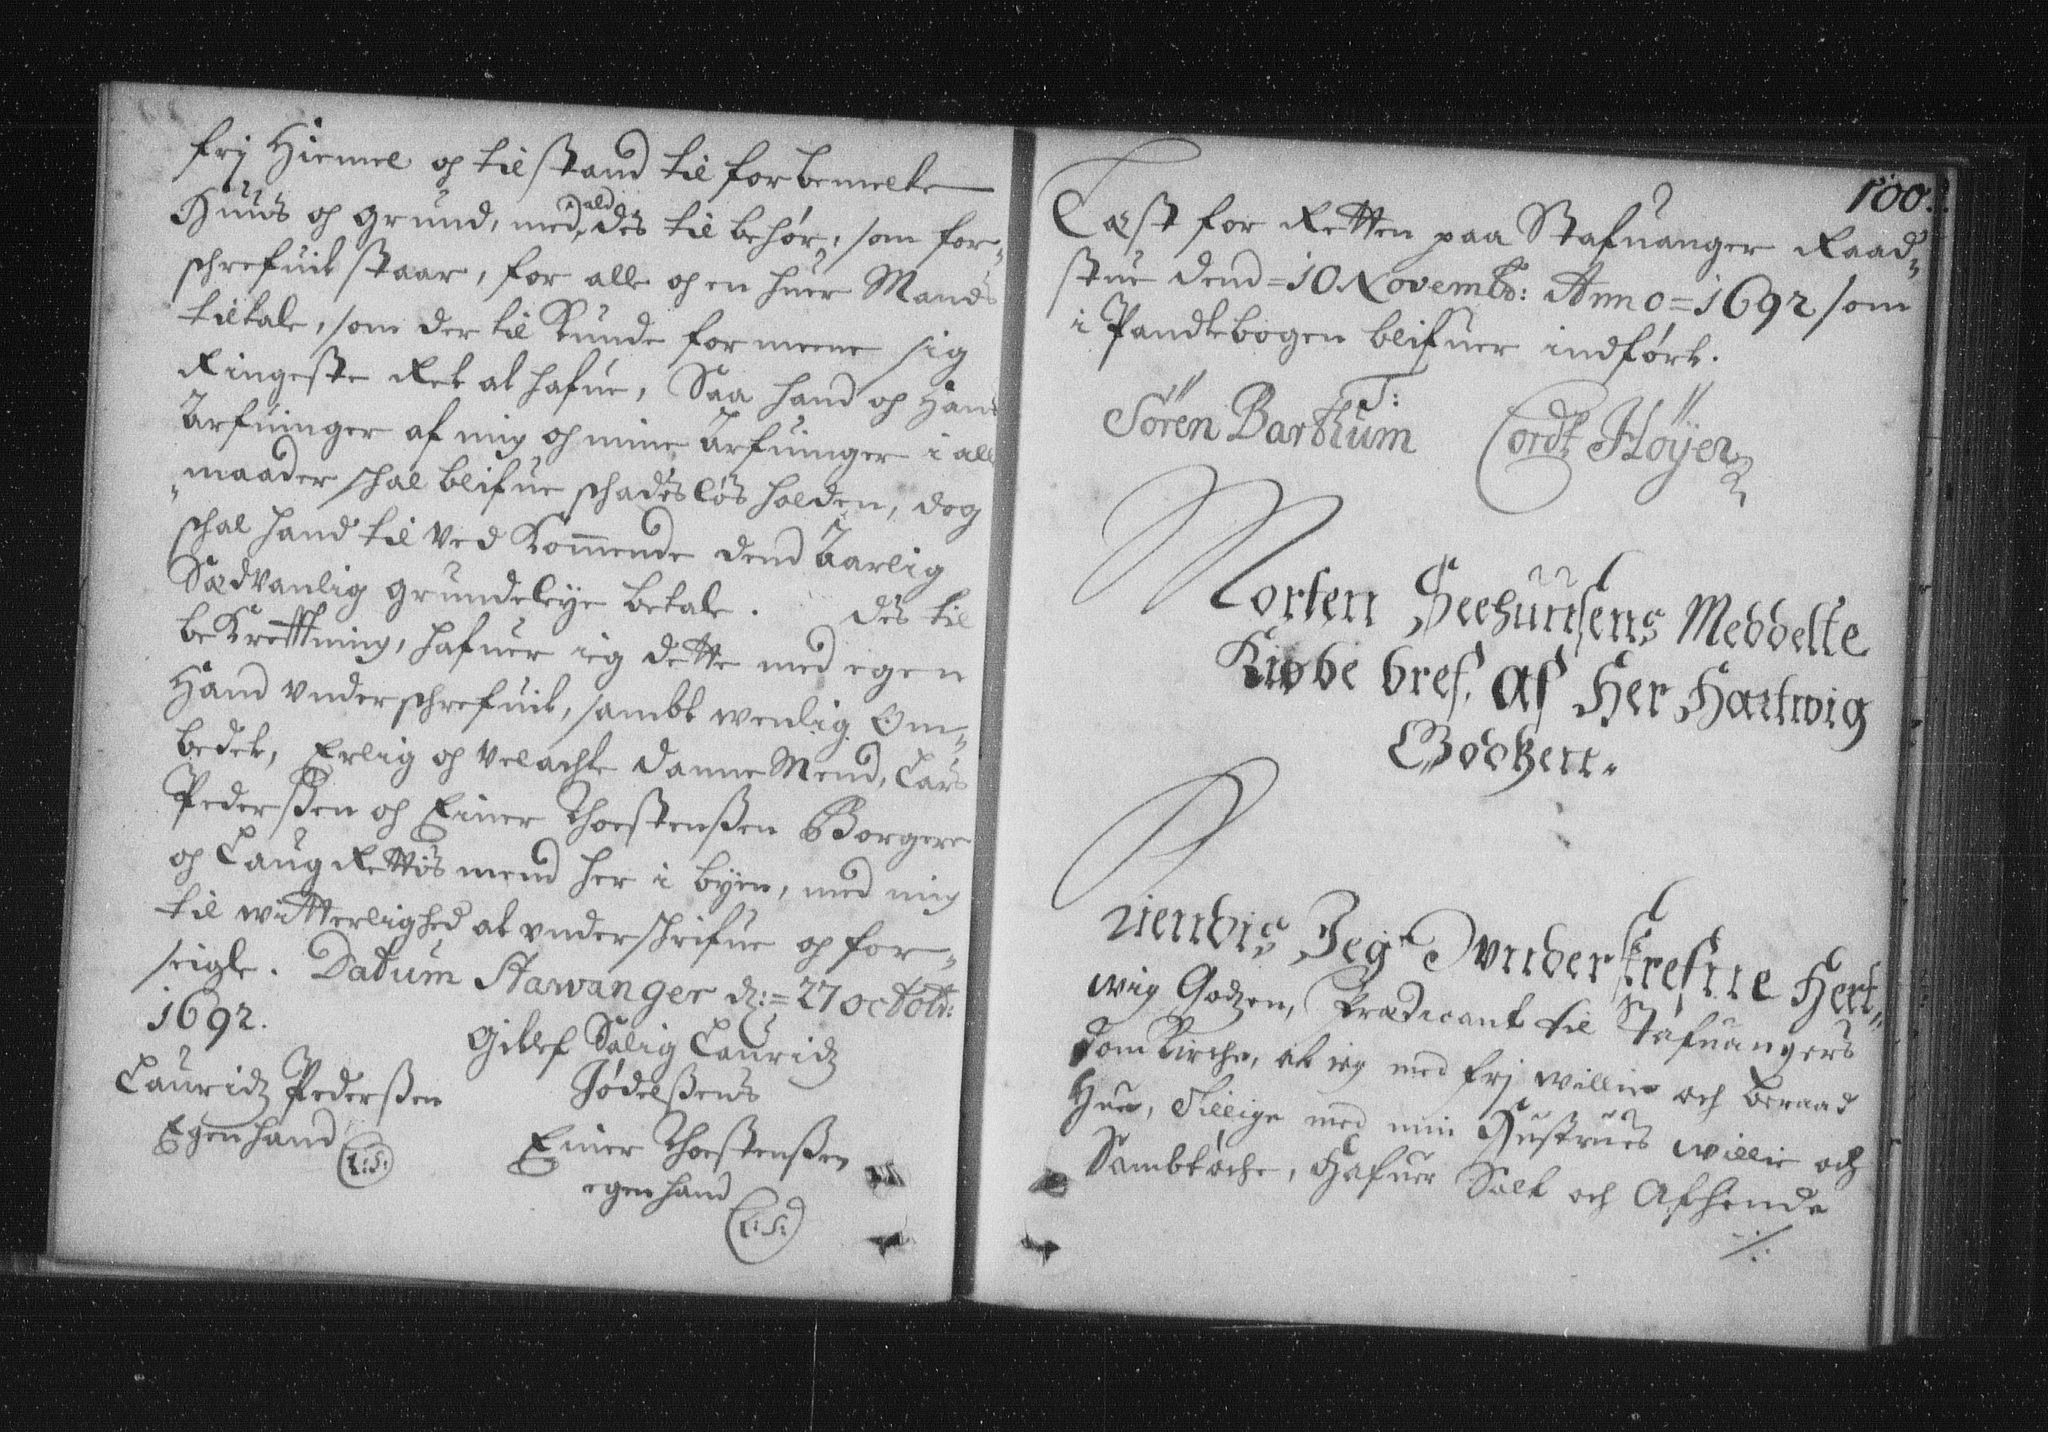 frj Hiemel og tilstand til forbemelte
Huus og grund, med ald dés til behør, som for-
schrefuit staar, for alle og en huer Mands
tiltale, som der til Kunde formeene sig
Ringeste Ret at hafue, Saa hand og Hans
Arfuinger af mig og mine Arfuinger i alle
maader schal blifue schadesløs holden, dog
schal hand til Ved Kommende dend Aarlig
Sædvanlig grundeleye betale. Dés til
beKrefftning, hafuer ieg dette med egen
Haand vnderschrefuit, sambt wenlig Om-
bedet, Erlig og Velachte Danne Mend, Lars
Pederßen og Einer Thorstenßen Borgere
og Laug Rettis mend her i byen, med mig
til witterlighed at vnderschrifue og for-
seigle. Datum Stawanger d: = 27 octobr:
1692.
Gitlef Salig Lauridz
Lauridz Pederßen
Jødelßens
Egenhand
L:S:
Einer Thorstenßen
egenhand
L:S:
100.
Læst for Retten paa Stafuanger Raad-
stue dend = 10 Novembr: Anno = 1692 som
i Pandtebogen blifuer indført.
Sören Barthum T:
Cordt Höÿer
Morten Seehuusens Meddelte
Kiøbe bref. af Her Hartwig
Godtzen.
Kiendis Jeg vnderskrefne Hert-
wig Godzen, Prædicant til Stafuangers
dom Kirche, at ieg med frj willie och beraad
Hue, Sillige med min Hustrues willie och
Sambtøche, Hafuer Solt och Afhende
./.